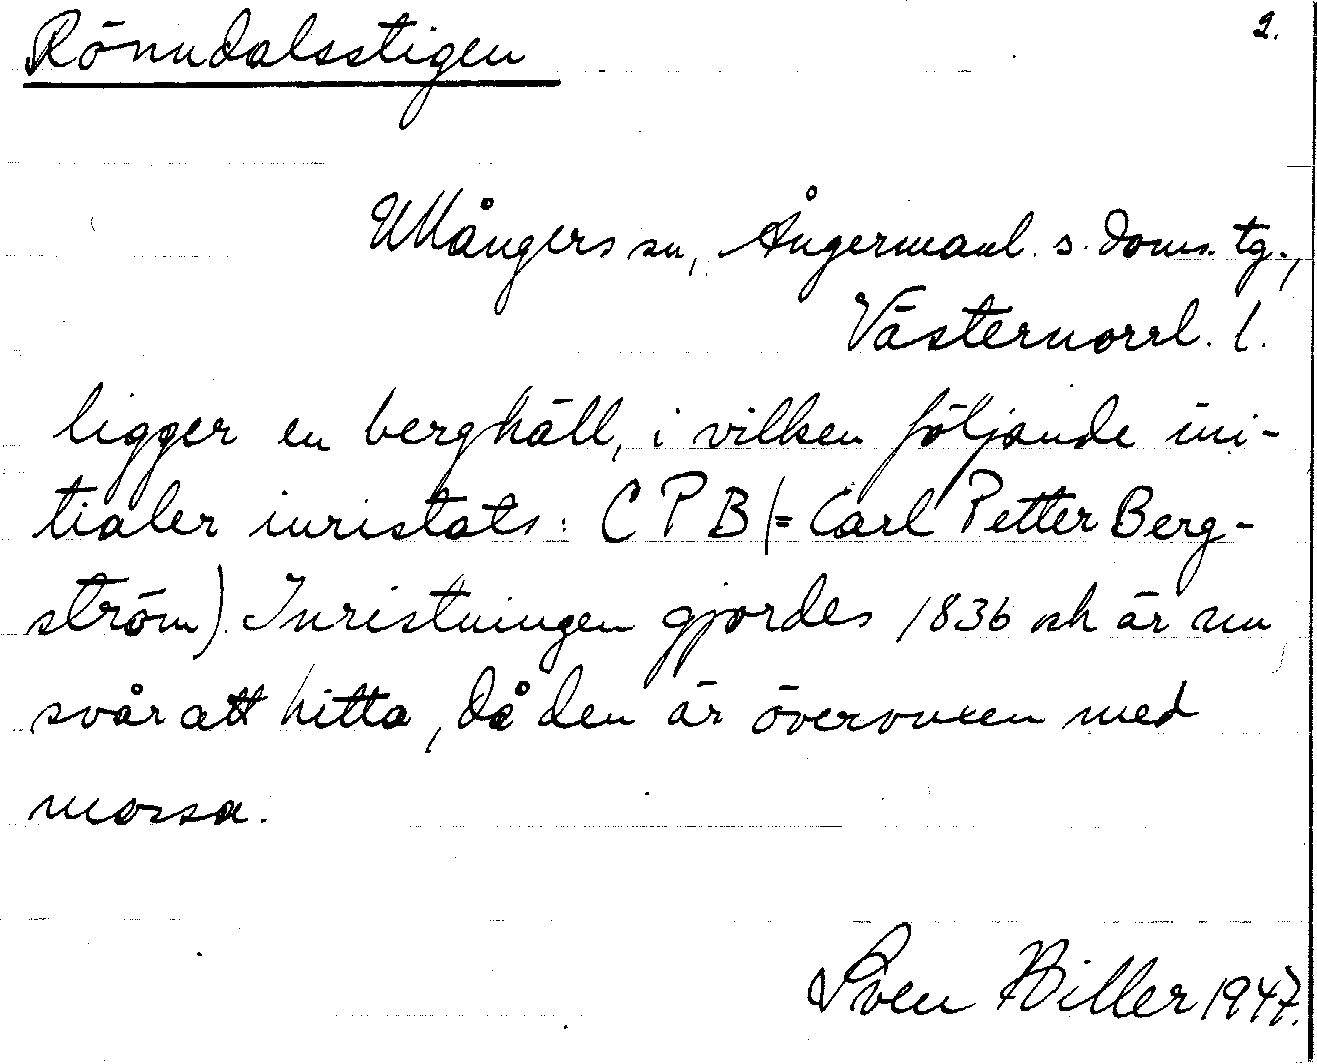 Rönndalsstigen 2.
Ullångers sn, Ångermanl. s. doms. tg.,
Västernorrl. l.
ligger en berghäll, i vilken följande ini-
tialer inristats: C P B (= Carl Petter Berg-
ström). Inristningen gjordes 1836 och är nu
svår att hitta, då den är övervuxen med
mossa.
Sven Hiller 1947.